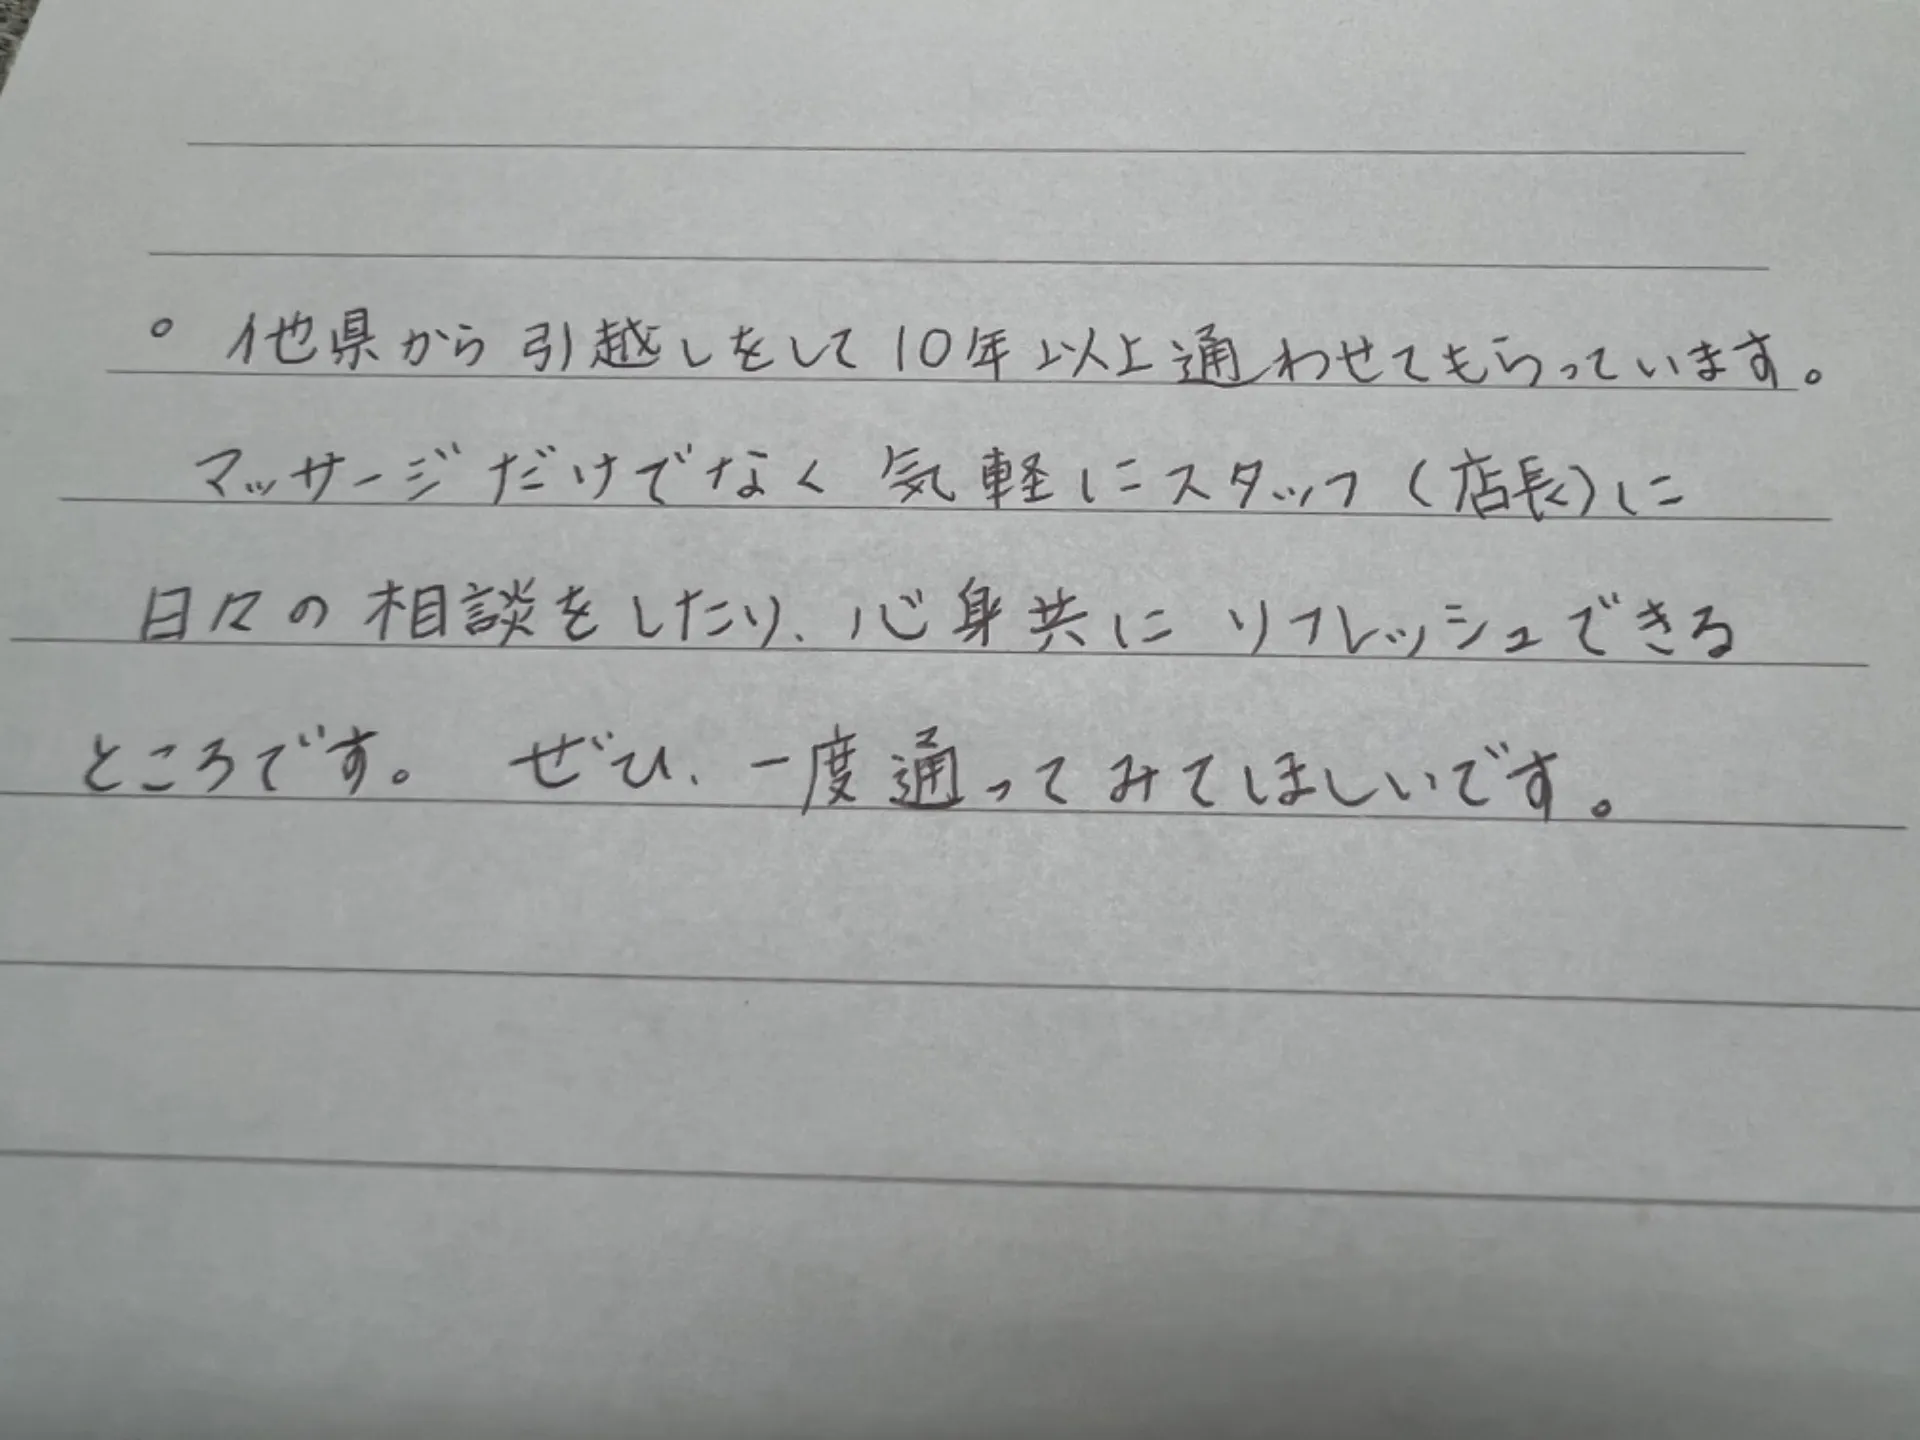 。他県から引越しをして10年以上通わせてもらっています。
マッサージだけでなく気軽にスタッフ(店長)に
日々の相談をしたり、心身共にリフレッシュできる
ところです。 ぜひ、一度通ってみてほしいです。